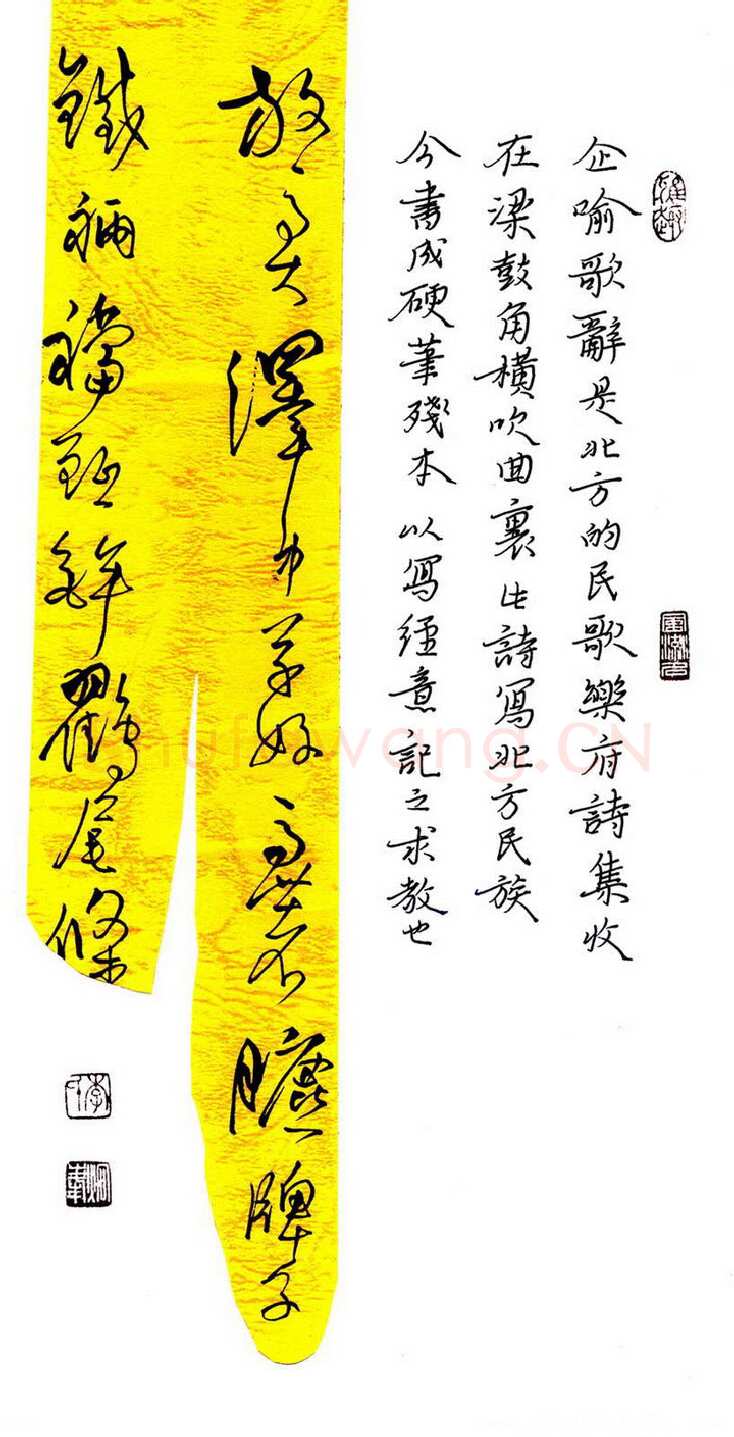 企喻歌辭是北方的民歌樂府詩集收
在梁鼓角橫吹曲裏此詩寫北方民族
今書成硬筆殘本以寫經意記之求教也
放馬大澤中草好馬著臕牌子
鐵裲襠鉦鉾鸐尾條
shufawang.CN